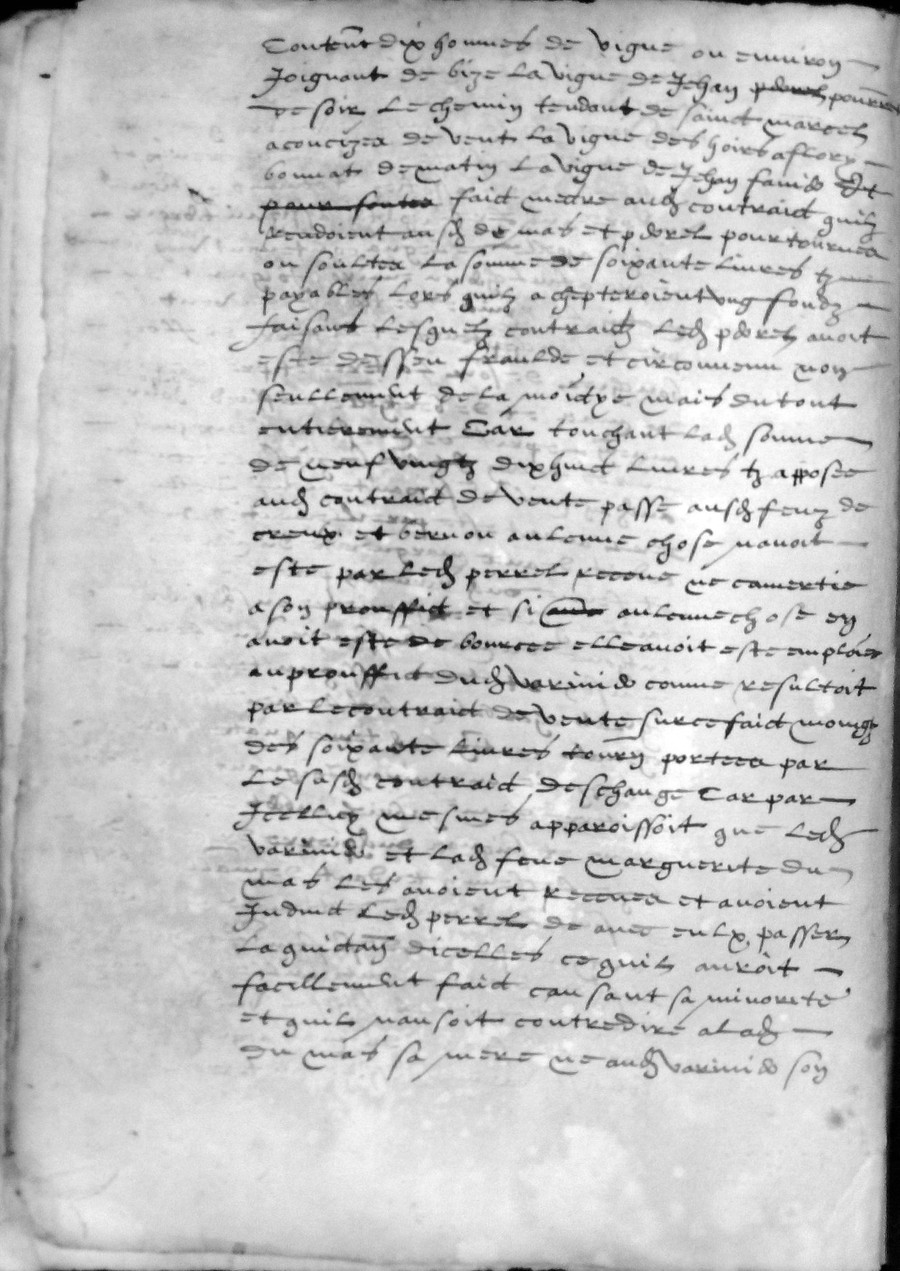 Contenant dix hommes de vigne ou environ
Joignant de bize la vigne de Jehan pour
de soir le chemin tendant de sainct marcel
a de vent la vigne des hoirs a flory
bonnat de matin la vigne de Jehan Et
pour soutes faict mectre aud contraict quilz
rendoient ausd du mas et perrel pour tournes
ou soultes la somme de soixante livres tz
payables lors quilz achepteroient ung fondz
faisans lesquelz contraictz led perrel avoit
este desseu fraulde et circonvenu non
seullement de la moictye mais du tout
entierement Car touchant lad somme
de neuf vingtz dixhuict livres tz apposee
aud contraict de vente passe ausd feuz de
creux et bernon aulcune chose navoit
este par led perrel receue ne convertie
a son prouffict et si aulcune chose en
avoit este de bourcee elle avoit este emploiee
au prouffict dud comme resultoit
par le contraict de vente sur ce faict moings
des soixante livres tourn portees par
le susd contraict deschange Car par
Icelluy mesmes apparoissoit que led
et lad feue marguerite du
mas les avoient receues et avoient
Induict led perrel de avec eulx passer
la quictance dicelles ce quil auroit
facillement faict causant sa minorite
et quil nausoit contredire a lad
du mas sa mere ne aud son